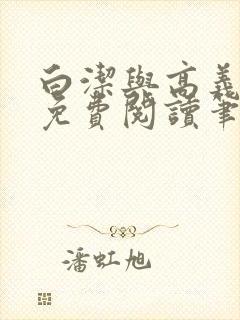 白潔與高義
免費閱讀筆
潘虹旭